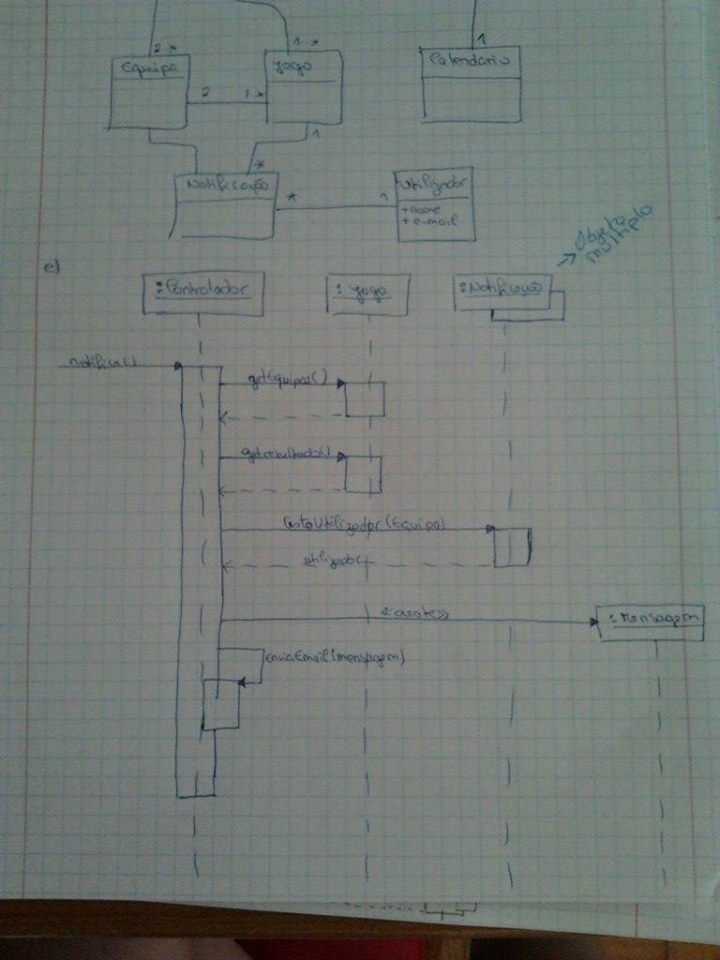 2..*
1..*
1
Equipa
Jogo
Calendário
2
1..*
1
*
Notificação
*
1
Utilizador
+nome
+e-mail
→ Objeto
múltiplo
e)
:Controlador
: Jogo
:Notificação
notifica()
getEquipas()
getresultado()
utilizador
<<create>>
:Mensagem
enviaEmail(mensagem)